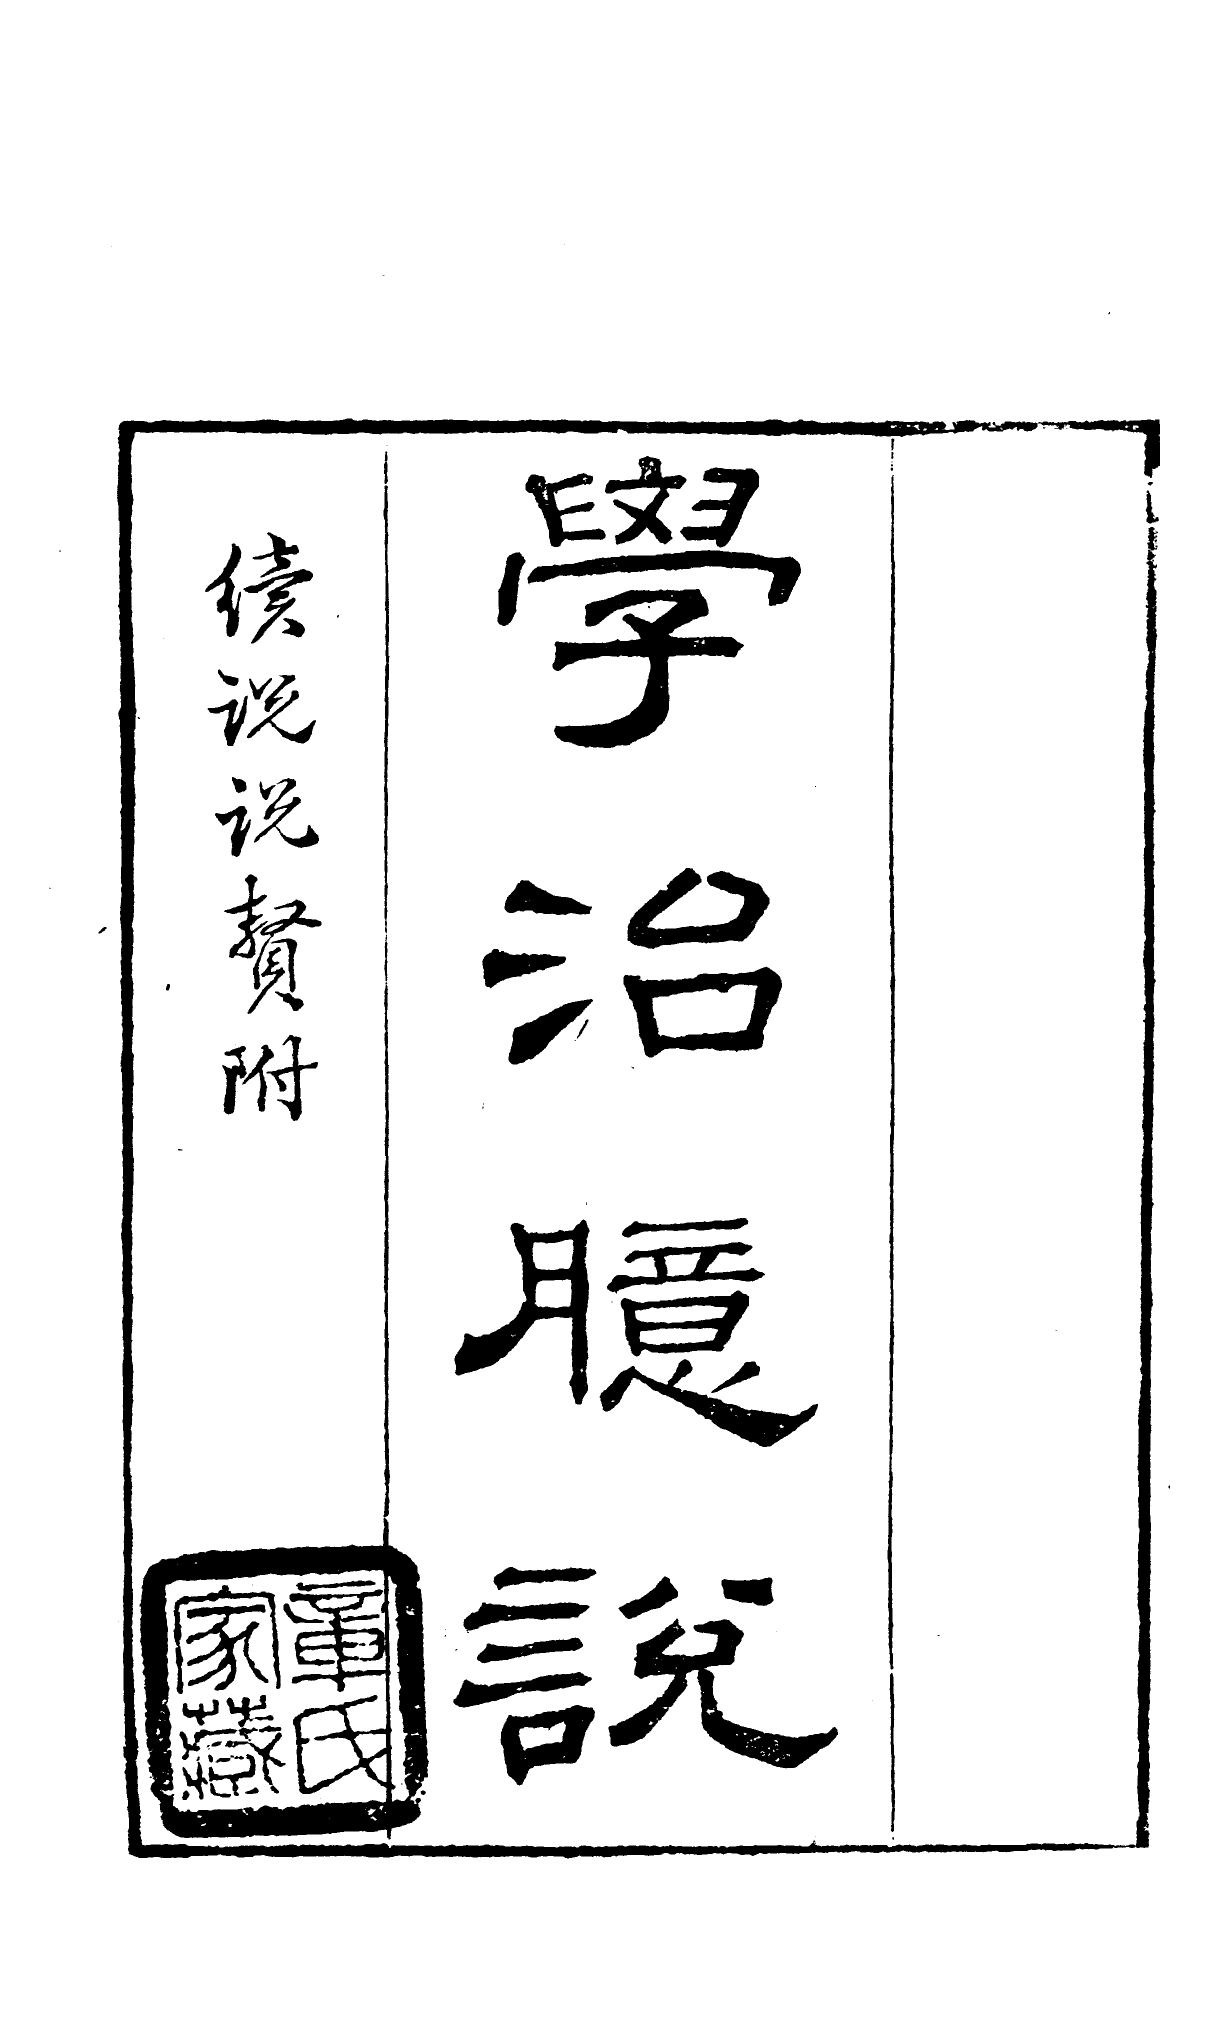 學治臆說
續說說贅附
章氏家藏